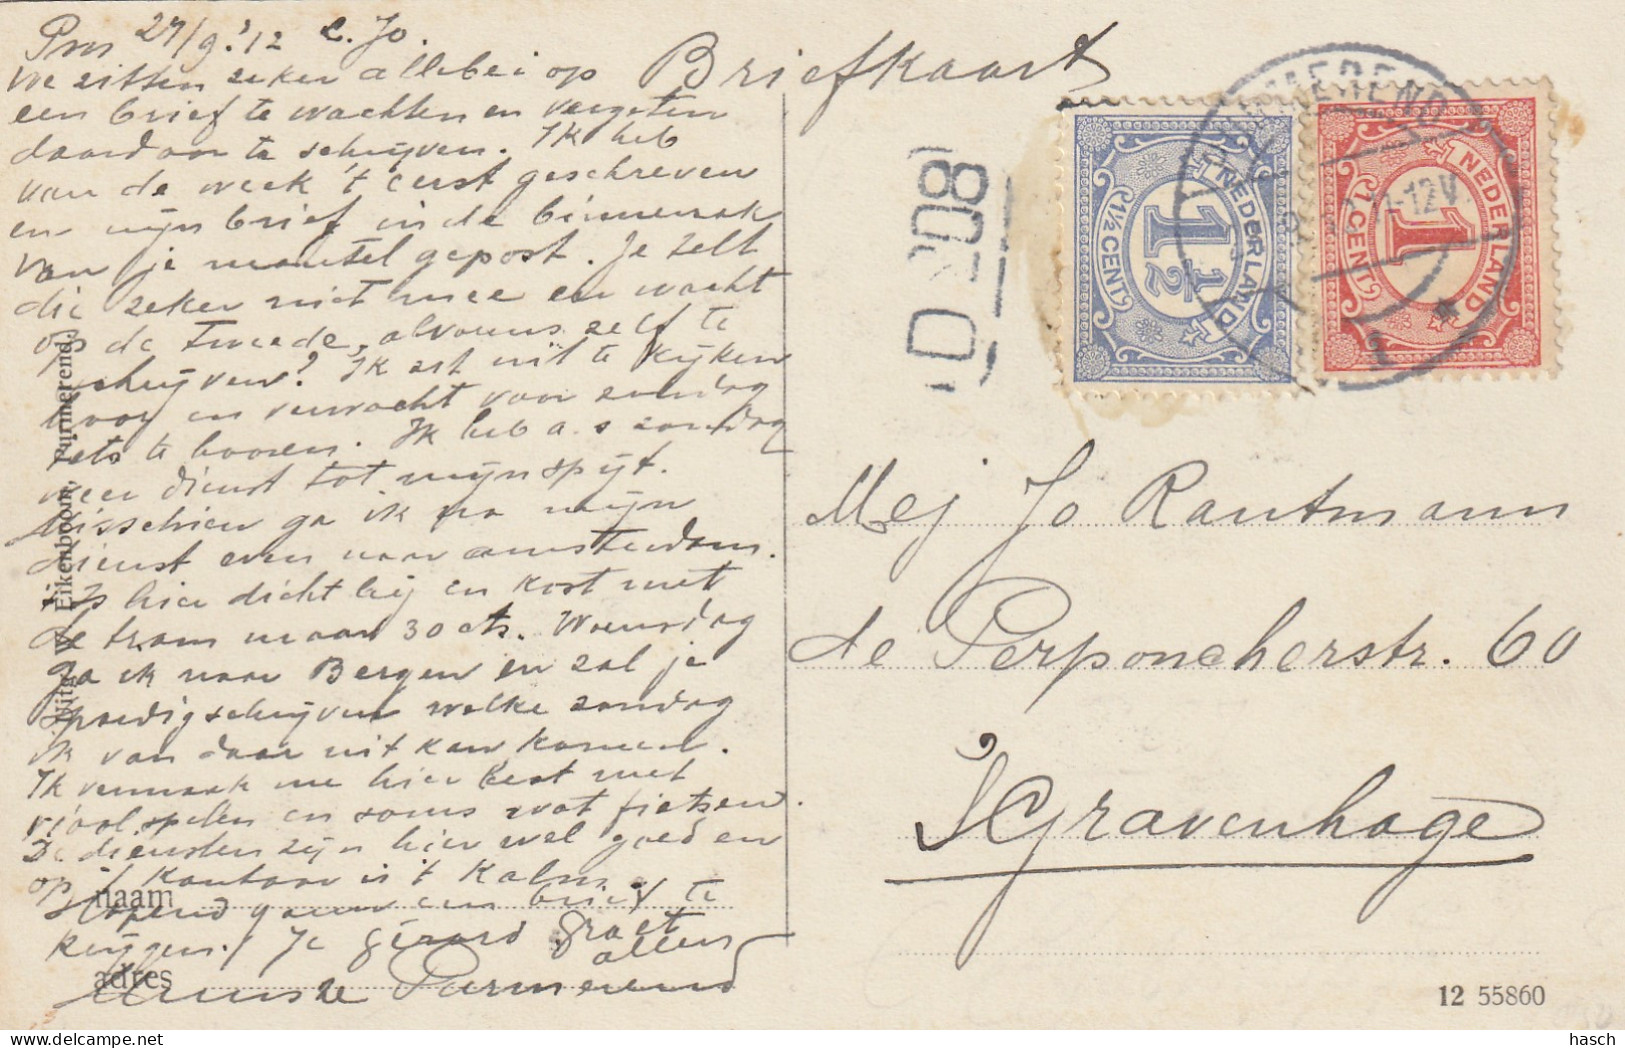 Pm 27/9.'12 L. Jo.
We zitten zeker allebei op
een brief te wachten en vergeten
daardoor te schrijven. Ik heb
van de week 't eerst geschreven
en mijn brief in de binnenzak
van je mantel gepost. Je zelt
die zeker niet mee en wacht
op de tweede, alvorens zelf te
schrijven? Ik zit uit te kijken
hoor en verwacht voor zondag
iets te hooren. Ik heb a.s zondag
weer dienst tot mijn spijt.
Misschien ga ik na mijn
dienst even naar Amsterdam.
't Is hier dicht bij en kost met
de tram maar 30 cts. Woensdag
ga ik naar Bergen en zal je
spoedig schrijven welke zondag
ik van daar uit kan komen.
Ik vermaak me hier best met
viool spelen en soms wat fietsen.
De diensten zijn hier wel goed en
op 't kantoor is 't kalm.
Hopend gauw een brief te
krijgen. Je Gérard groet
allen
Purmerend
Briefkaart
NEDERLAND
1½
1½ CENT
NEDERLAND
1
1 CENT
PURMEREND
-12V
Mej Jo Rautmann
de Perponcherstr. 60
's Gravenhage
Uitg. W. Eikenboom, Purmerend.
naam
adres
12 55860
delcampe.net
hasch